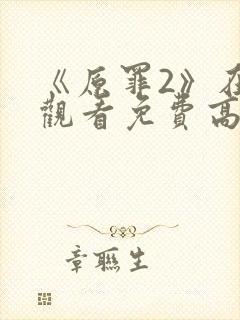 《原罪2》在
觀看免費高
章聯生